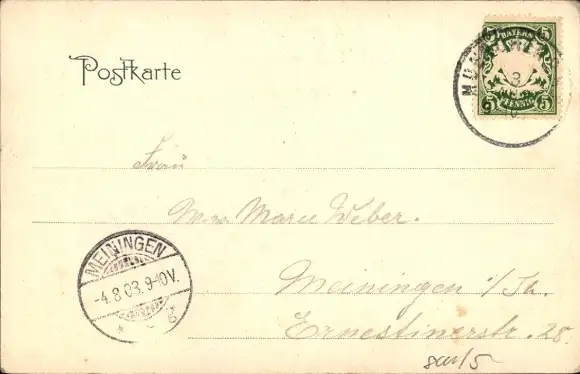 Postkarte
BAYERN
5 5
3
5 PFENNIG 5
Frau
Wwe Marie Weber.
MEININGEN
-4.8.03. 9-10V.
* g
Meiningen i/Th.
Ernestinerstr. 28.